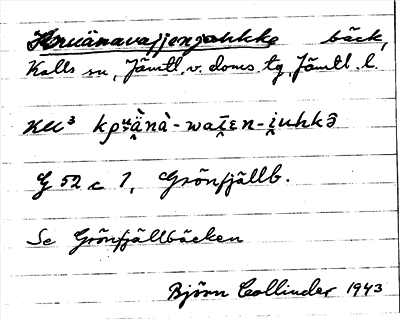 Kruänavajjenjohkke bäck,
Kalls sn, Jämtl. v. doms. tg, Jämtl. l.
KU³
G 52 c 1, Grönfjällb.
Se Grönfjällbäcken
Björn Collinder 1943